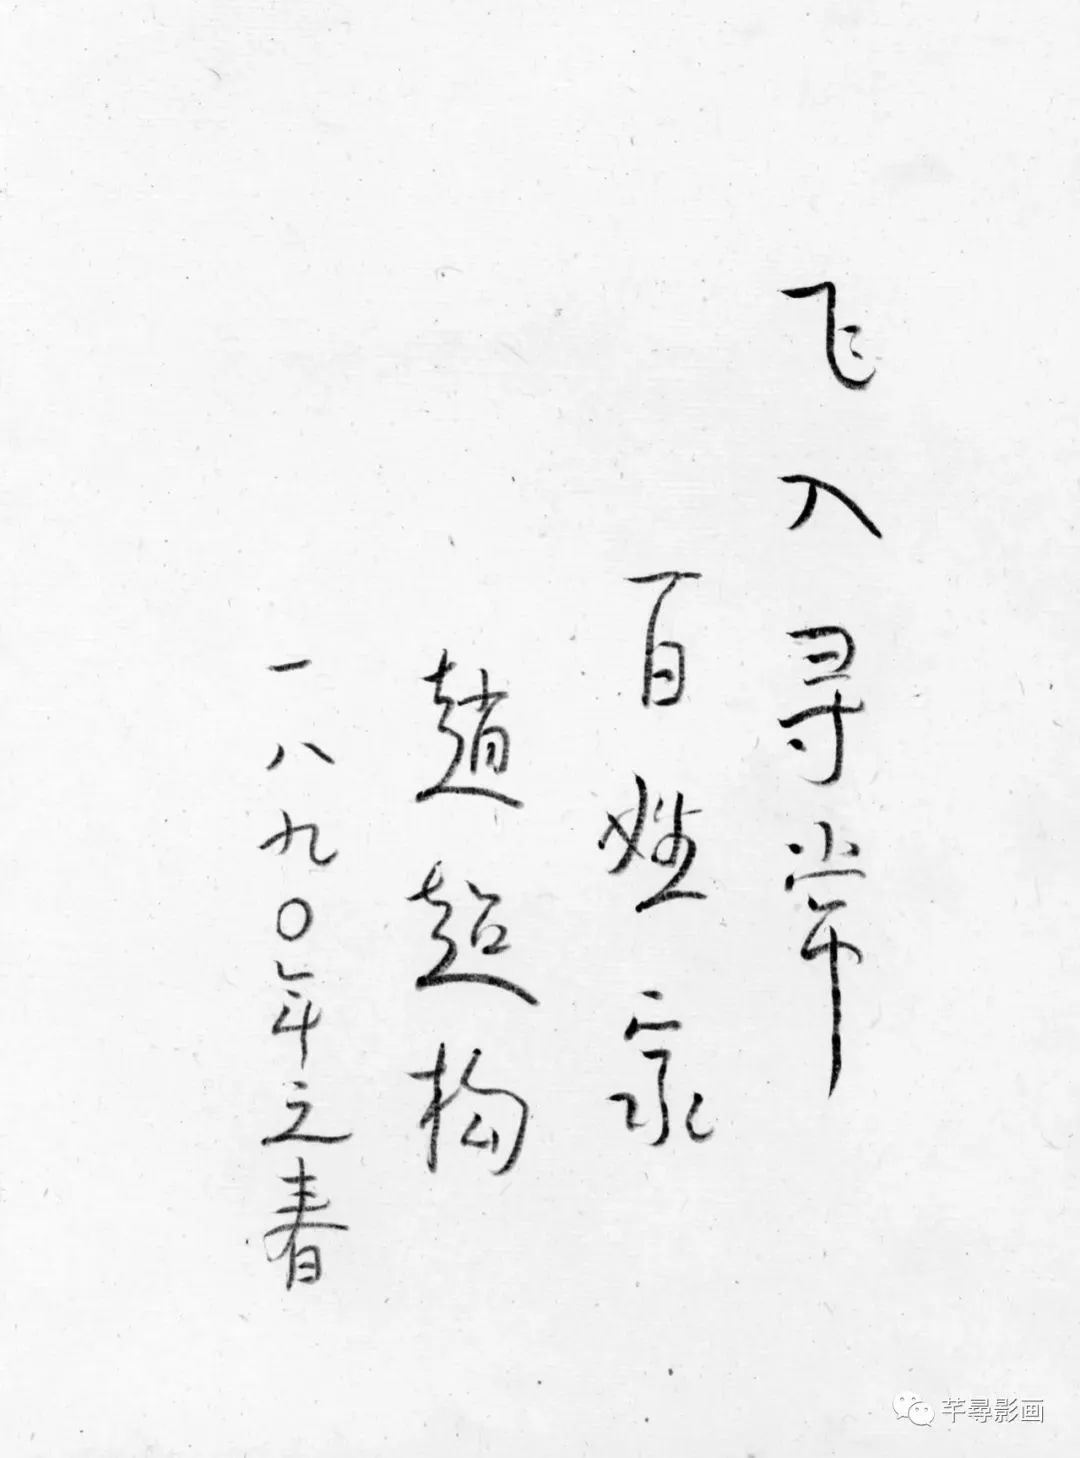 飞入寻常
百姓家
趙超构
一八九〇年之春
芊尋影画